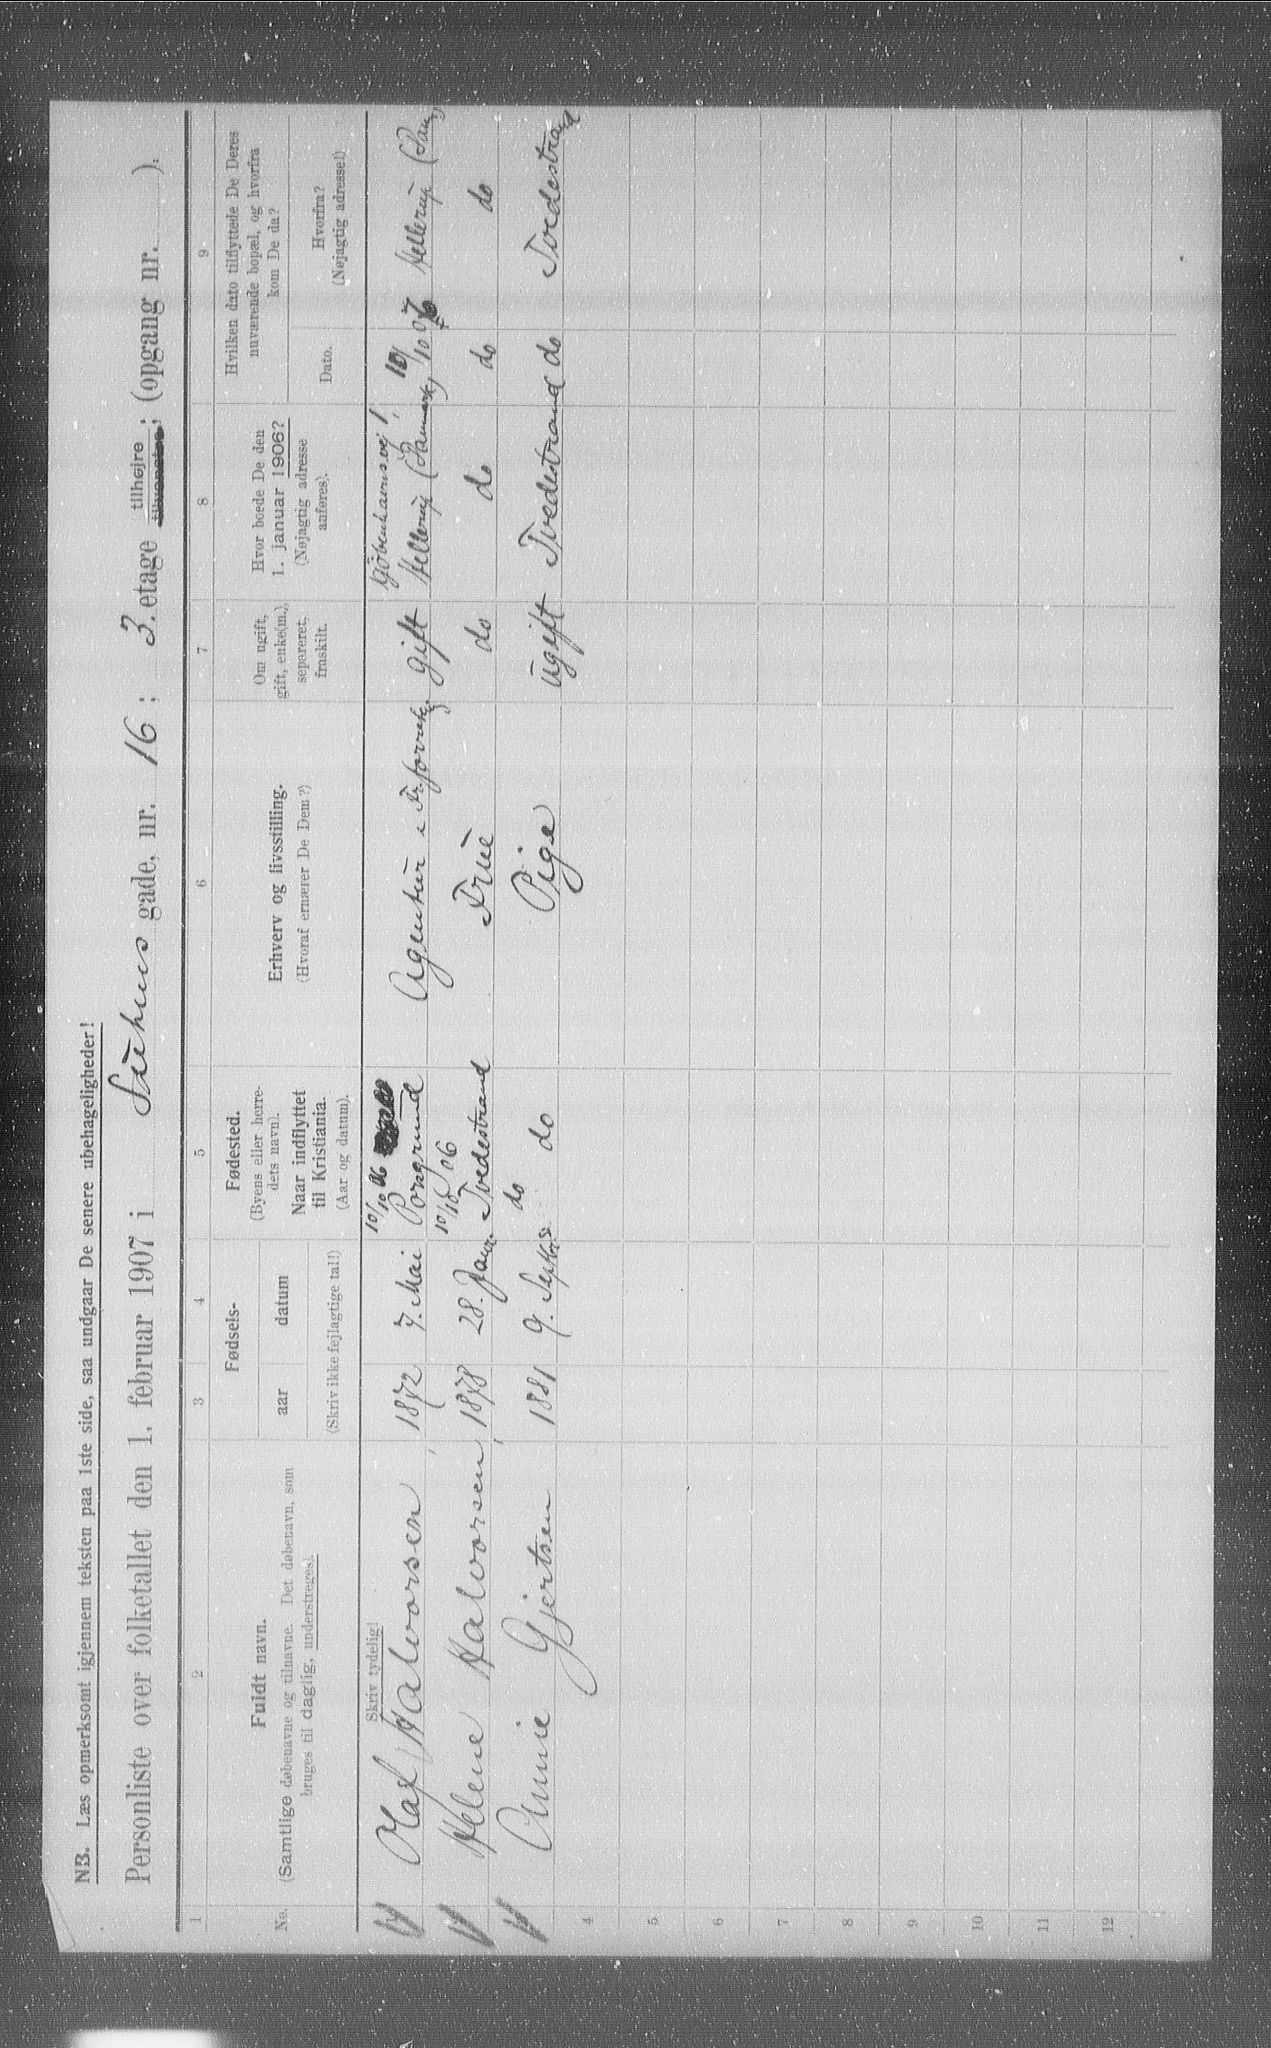 NB. Læs opmerksomt igjennem teksten paa 1ste side, saa undgaar De senere ubehageligheder!
Personliste over folketallet den 1. februar 1907 i Stenhus gade, nr. 16 ; 3. etage tilhøjre ; (opgang nr. ).
tilvenstre
1 2 3 4 5 6 7 8 9
No.
Fuldt navn.
(Samtlige døbenavne og tilnavne. Det døbenavn, som
bruges til daglig, understreges).
Fødsels-
aar datum
(Skriv ikke fejlagtige tal!)
Fødested.
(Byens eller herre-
dets navn).
Naar indflyttet
til Kristiania.
(Aar og datum).
Erhverv og livsstilling.
(Hvoraf ernærer De Dem?)
Om ugift,
gift, enke(m.),
separeret,
fraskilt.
Hvor boede De den
1. januar 1906?
(Nøjagtig adresse
anføres).
Hvilken dato tilflyttede De Deres
nuværende bopæl, og hvorfra
kom De da?
Dato.
Hvorfra?
(Nøjagtig adresse!)
Skriv tydelig!
10/10 06 Kjöbenhavnsvej 1,
Olaf Halvorsen, 1872 7. Mai Porsgrund Agentur & Fr. forretn. gift Hellerup (Danmark) 10/10 06 Hellerup (Danm)
10/10 06
Helene Halvorsen, 1878 28. Janr. Tvedestrand Frue do do do do
do
Annie Gjertsen 1881 9. Septbr do Pige ugift Tvedestrand do Tvedestrand
4
5
6
7
8
9
10
11
12